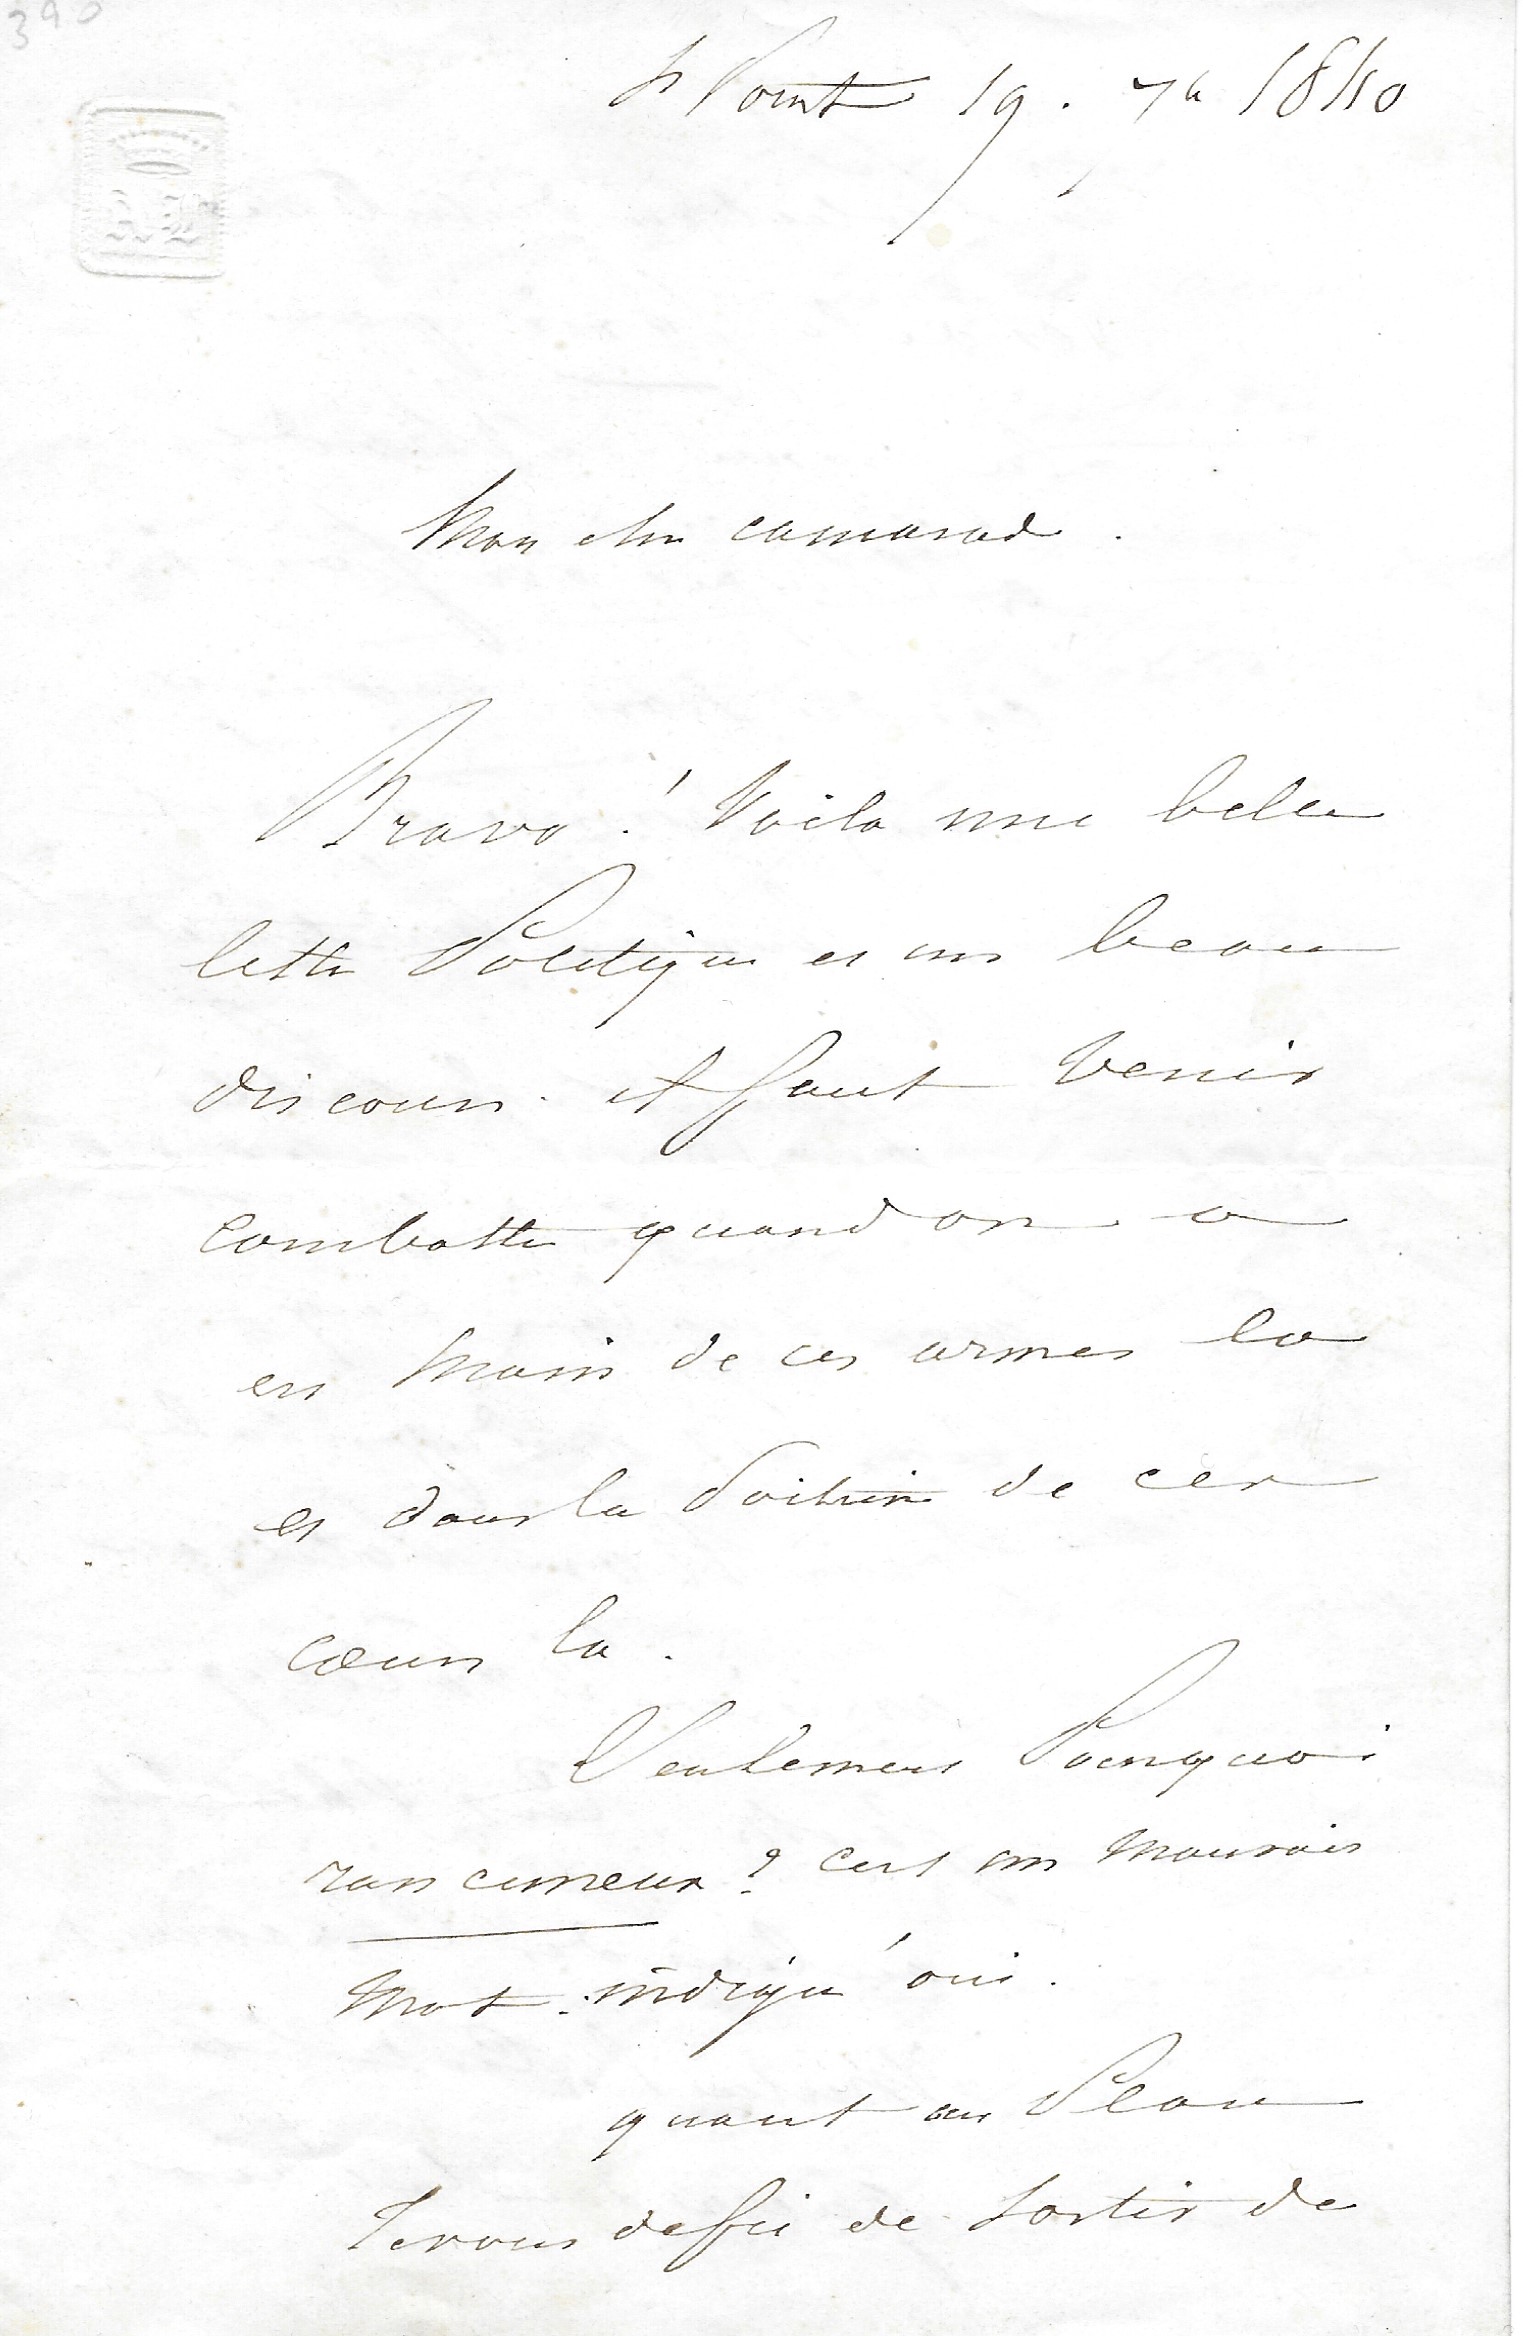 390
St Point 19. 7b 1840
A L
Mon cher camarade.
Bravo! Voila une belle
lettre Politique et un beau
discours. il faut venir
combattre quand on a
en main de ces armes la
et dans la Poitrine de ces
cœurs la.
Seulement Pourquoi
rancuneux? cest un mauvais
mot.
quant au Plan
Je vous defie de sortir de